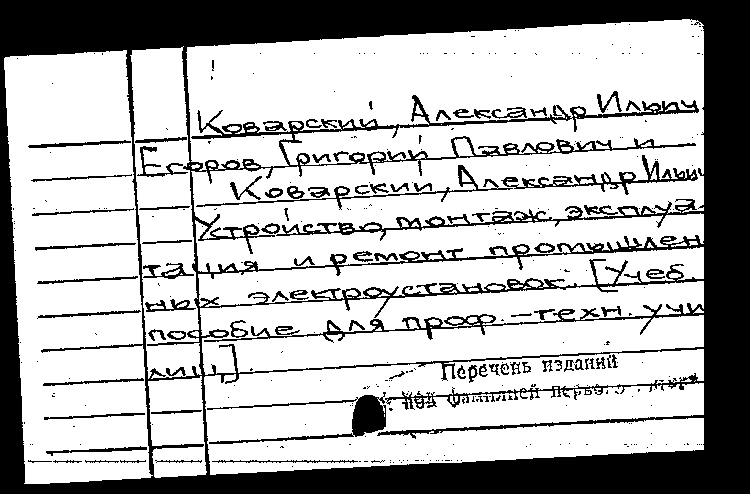 Коварский, Александр Ильич.
Егоров, Григорий Павлович и
Коварский, Александр Ильич
Устройство, монтаж, эксплуа-
тация и ремонт промышлен
ных электроустановок. [Учеб.
пособие для проф.-техн. учи
лищ]
Перечень изданий
под фамилией первого